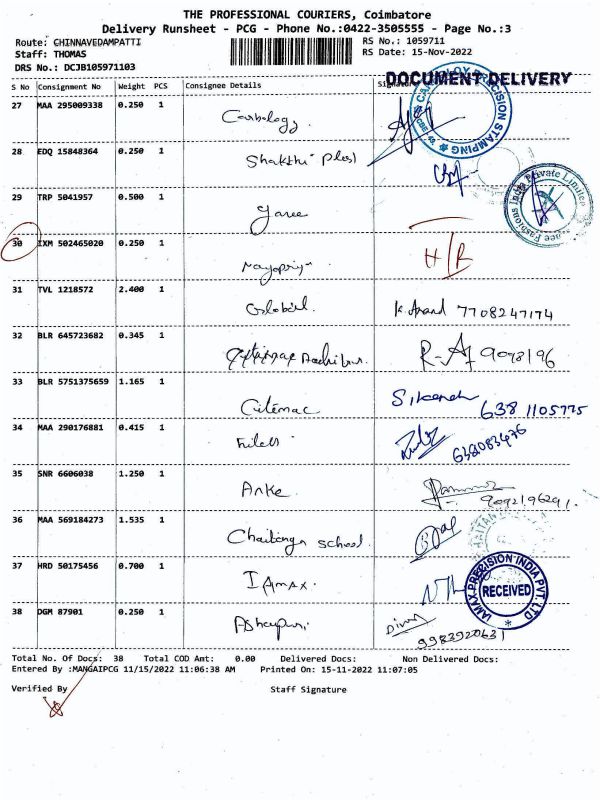 THE PROFESSIONAL COURIERS, Coimbatore
Delivery Runsheet - PCG - Phone No.:0422-3505555 - Page No.:3
Route: CHINNAVEDAMPATTI
RS No.: 1059711
Staff: THOMAS
RS Date: 15-Nov-2022
DRS No.: DCJB105971103
DOCUMENT DELIVERY
S No Consignment No Weight PCS Consignee Details
27 MAA 295009338 0.250 1 Carbology
PRECISION STAMPING
28 EDQ 15848364 0.250 1 Shakthi plast
29 TRP 5041957 0.500 1
Fashions India Private Limited
30 IXM 502465020 0.250 1 H/R
31 TVL 1218572 2.400 1 Global K. Anand 7708247174
32 BLR 645723682 0.345 1 R-A 9098196
33 BLR 5751375659 1.165 1 Citemac 6381105775
34 MAA 290176881 0.415 1 638083476
35 SNR 6606038 1.250 1 Anke 9092196291
36 MAA 569184273 1.535 1 Chaitanya school
37 HRD 50175456 0.700 1 IAmax.
IAMAX PRECISION INDIA PVT LTD
RECEIVED
38 DGM 87901 0.250 1 Ashapuri 9983920631
Total No. Of Docs: 38 Total COD Amt: 0.00 Delivered Docs: Non Delivered Docs:
Entered By :MANGAIPCG 11/15/2022 11:06:38 AM Printed On: 15-11-2022 11:07:05
Verified By Staff Signature